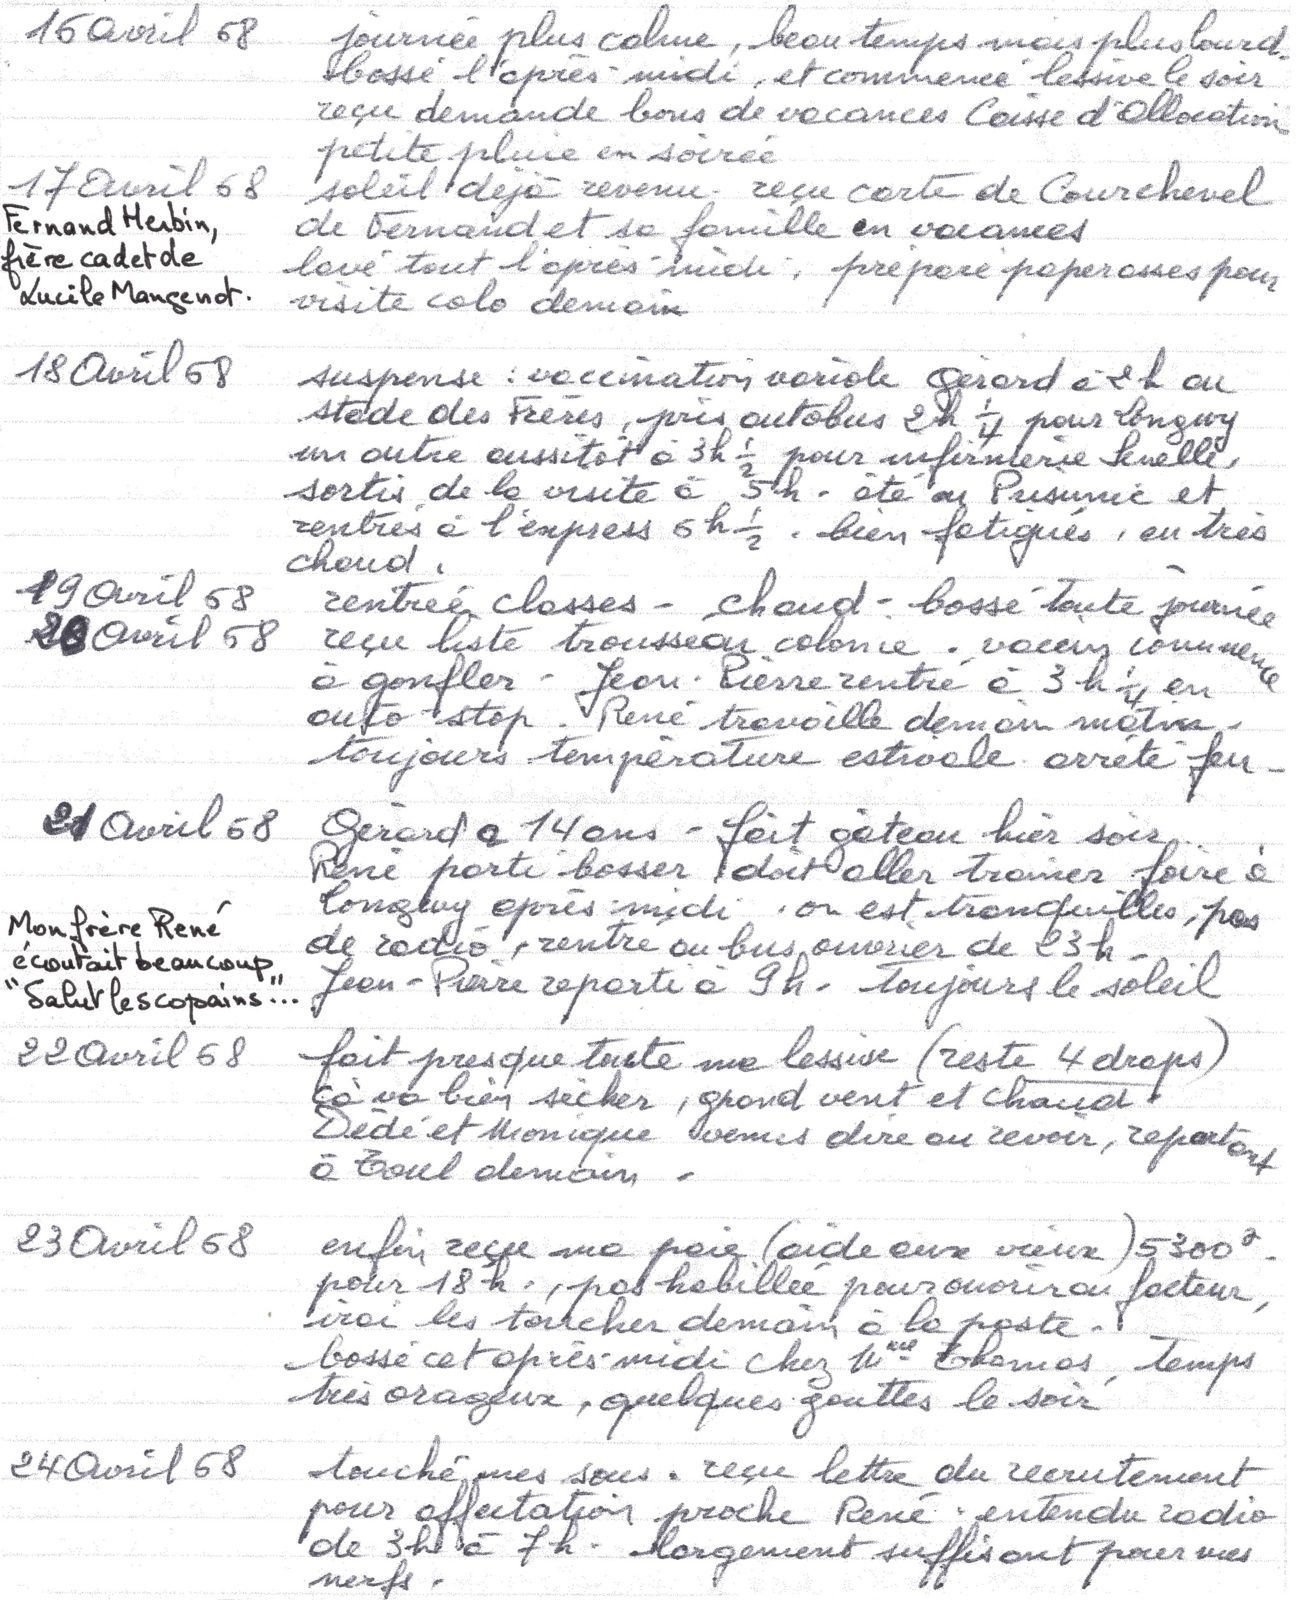 16 Avril 68 journée plus calme, beau temps mais plus lourd.
bossé l'après-midi, et commencé lessive le soir
reçu demande bons de vacances Caisse d'Allocation
petite pluie en soirée
17 Avril 68 soleil déjà revenu. reçu carte de Courchevel
Fernand Herbin, de Fernand et sa famille en vacances
frère cadet de lavé tout l'après-midi, préparé paperasses pour
Lucile Mangenot. visite colo demain
18 Avril 68 suspense : vaccination variole Gérard à 2h au
stade des Frères, pris autobus 2h 1/4 pour Longwy
un autre aussitôt à 3h 1/2 pour infirmerie Senelle,
sortis de la visite à 5h. été au Prisunic et
rentrés à l'express 6h 1/2. bien fatigués, eu très
chaud.
19 Avril 68 rentrée classes - chaud - bossé toute journée
20 Avril 68 reçu liste trousseau colonie. vaccin commence
à gonfler - Jean-Pierre rentré à 3h 1/4 en
auto-stop. René travaille demain matin.
toujours température estivale. arrêté feu -
21 Avril 68 Gérard a 14 ans - fait gâteau hier soir
René parti bosser, doit aller trainer foire à
Longwy après-midi. on est tranquilles, pas
Mon frère René de radio, rentre au bus ouvrier de 23h -
écoutait beaucoup Jean-Pierre reparti à 9h. toujours le soleil
"Salut les copains"...
22 Avril 68 fait presque toute ma lessive (reste 4 draps)
çà va bien sécher, grand vent et chaud.
Dédé et Monique venus dire au revoir, repartant
à Toul demain.
23 Avril 68 enfin reçu ma paie (aide aux vieux) 5300 -
pour 18h., pas habillée pour ouvrir au facteur,
irai les toucher demain à la poste.
bossé cet après-midi chez Mme Thomas, temps
très orageux, quelques gouttes le soir
24 Avril 68 touché mes sous. reçu lettre du recrutement
pour affectation proche René. entendu radio
de 3h à 7h. largement suffisant pour mes
nerfs.